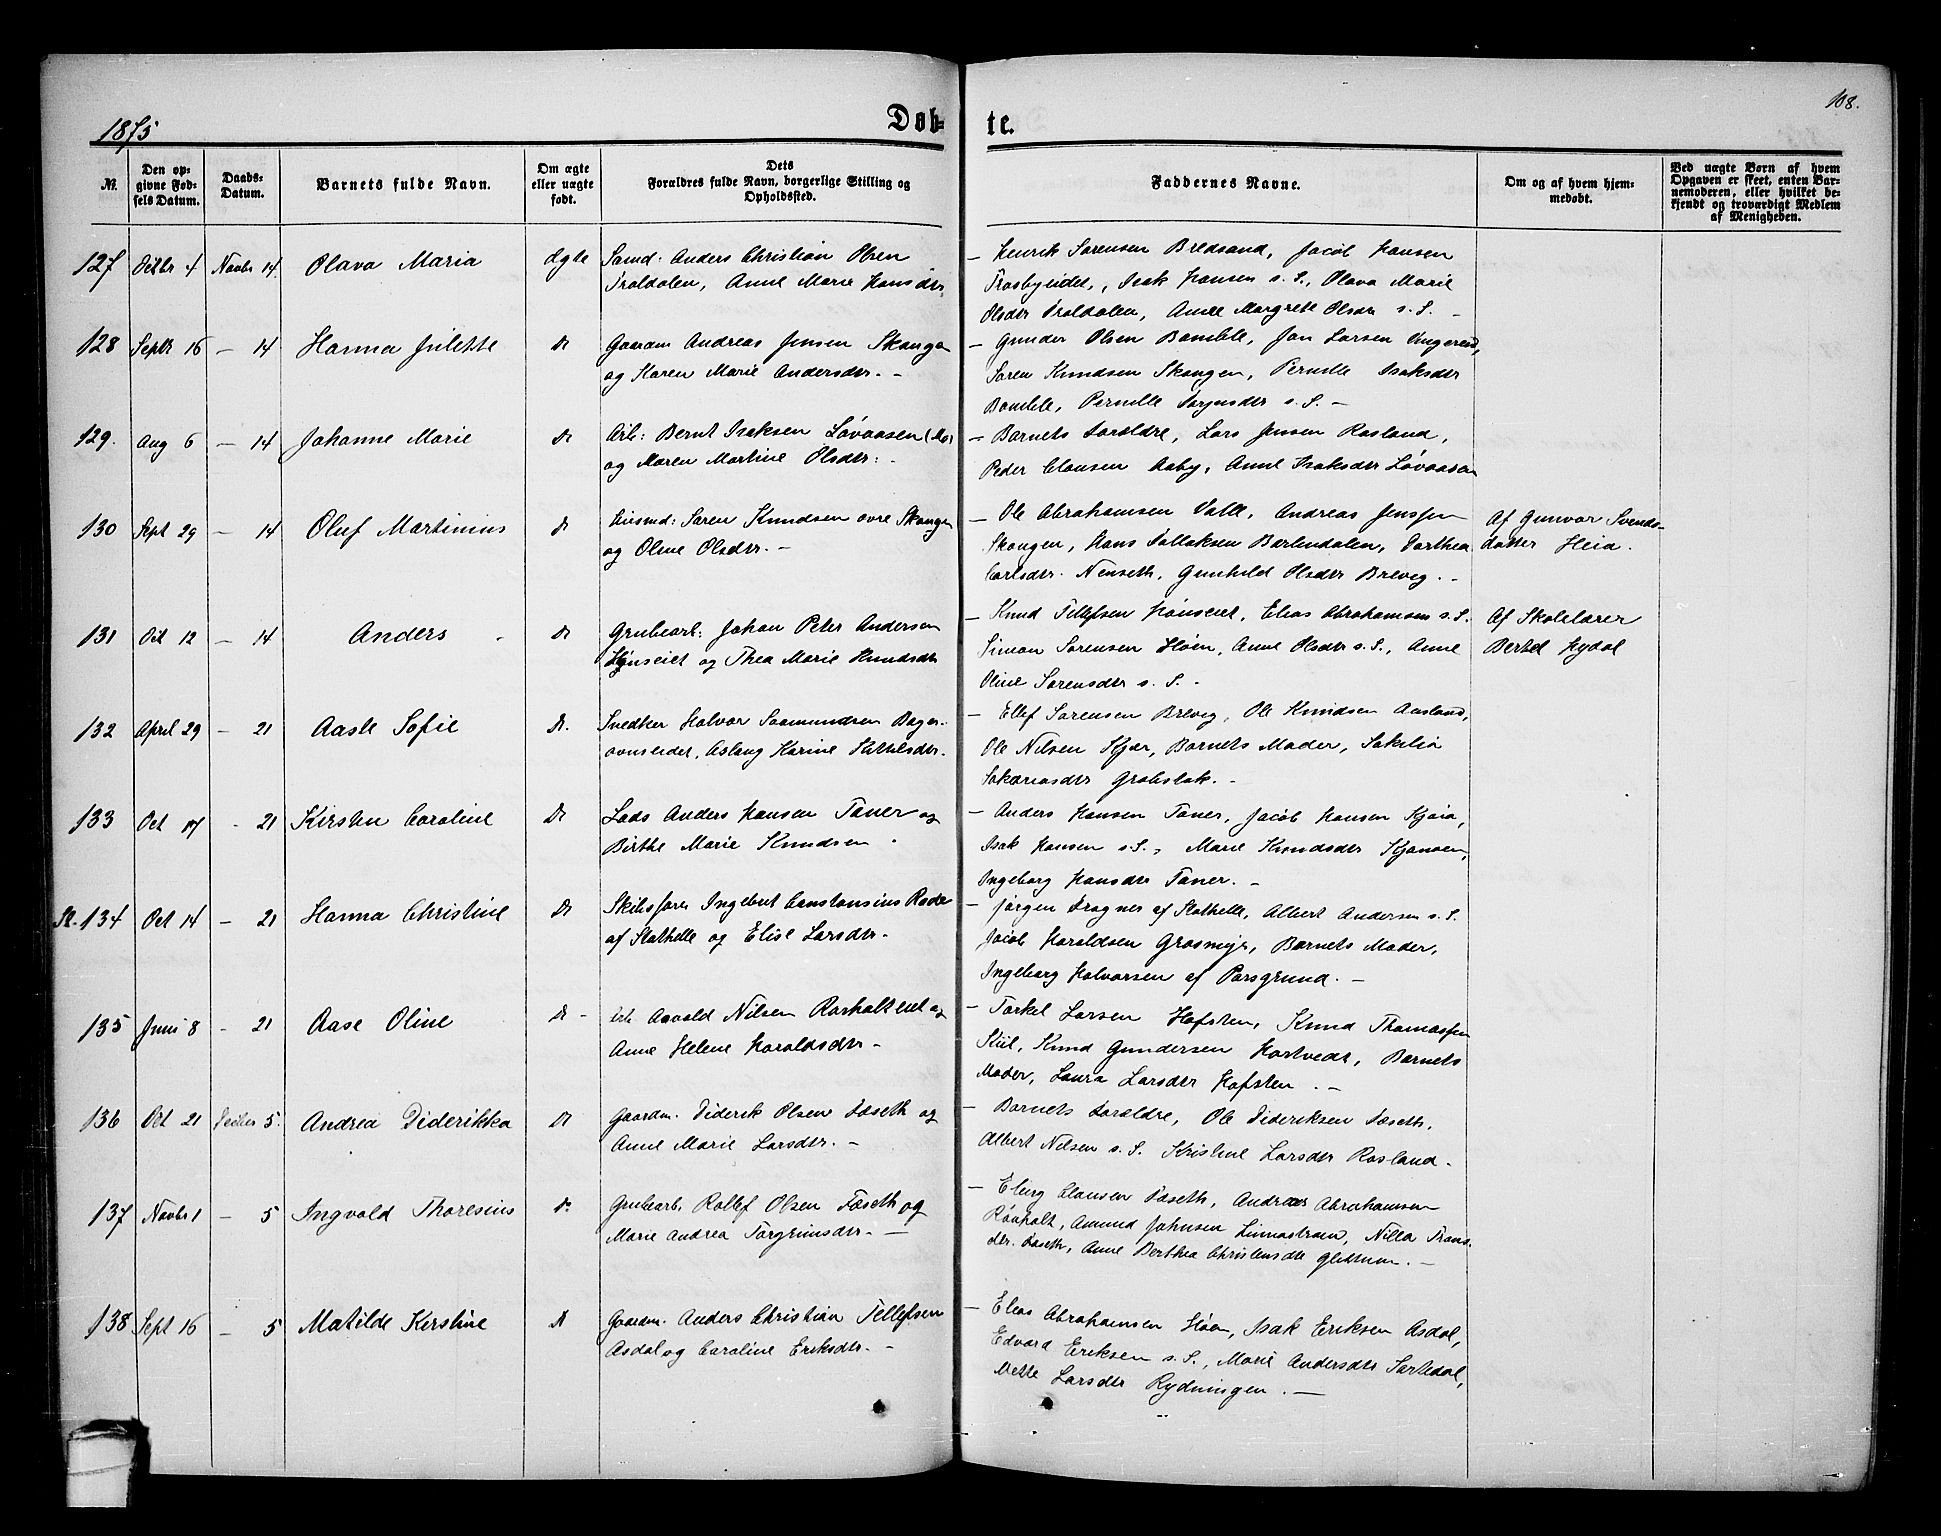 1875
Døb-
te.
108.
№.
Den op-
givne Fød-
sels Datum.
Daabs-
Datum.
Barnets fulde Navn.
Om ægte
eller uægte
født.
Dets
Forældres fulde Navn, borgerlige Stilling og
Opholdssted.
Faddernes Navne.
Om og af hvem hjem-
medøbt.
Ved uægte Børn af hvem
Opgaven er skeet, enten Bar-
nemoderen, eller hvilket be-
kjendt og troværdigt Medlem
af Menigheden.
127 Octbr 4 Novbr 14 Olava Maria ægte
Sømd: Anders Christian Olsen
Troldalen, Anne Marie Hansdtr
– Henrik Sørensen Bredsand, Jacob Hansen
Trosbyeidet, Isak Hansen s. S., Olava Marie
Olsdtr Troldalen, Anne Margrete Olsdtr s. S. –
128 Septbr 16 – 14 Hanna Juliette Do
Gaardm Andreas Jensen Skougen
og Karen Marie Andersdtr. –
– Gunder Olsen Bamble, Jan Larsen
Søren Knudsen Skougen, Pernille Isaksdtr
Bamble, Pernille Jørgensdtr s. S. –
129. Aug 6 – 14 Johanne Marie Do
Arb: Bernt Isaksen Løvaasen
og Maren Martine Olsdtr: –
– Barnets Forældre, Lars Jensen Rosland,
Peder Clausen Aaby, Anne Isaksdtr Løvaasen
130 Sept 29 – 14 Oluf Martinius Do
Husmd: Søren Knudsen øvre Skougen
og Oline Olsdtr. –
– Ole Abrahamsen Valle, Andreas Jenssen
Skougen, Hans Tollaksen Bærlindalen, Dorthea
Carlsdtr. Nenseth, Gunhild Olsdtr Brevig. –
Af Gunvor Svends-
datter Heia.
131 Oct 12 – 14 Anders Do
Grubearb: Johan Peter Andersen
Hønseiet og Thea Marie Knudsdtr
– Knud Tellefsen Hønseiet, Elias Abrahamsen s. S.
Simon Sørensen Høen, Anne Olsdtr s. S., Anne
Oline Sørensdtr s. S. –
Af Skolelærer
Bertel Nydal
132 April 29 – 21 Aaste Sofie Do.
Snedker Halvor Saamundsen Bager-
ovnseidet, Aslaug Karine Kittelsdtr.
– Ellef Sørensen Brevig, Ole Knudsen Aasland,
Ole Nilsen Skjær, Barnets Moder, Sakilia
Sakariasdtr Grobstok. –
133 Oct 17 – 21 Kirsten Caroline Do
Lods Anders Hansen Toner og
Birthe Marie Knudsen.
– Anders Hansen Toner, Jacob Hansen Kjøia,
Isak Hansen s. S., Marie Knudsdtr Kjønøen,
Ingeborg Hansdtr Toner. –
St. 134 Oct 14 – 21 Hanna Christine Do
Skibsfører Ingebret Constansius Rode
af Stathelle og Elise Larsdtr. –
– Jørgen Frogner af Stathelle, Albert Andersen s. S.
Jacob Haraldsen Grasmyr, Barnets Moder,
Ingeborg Halvorsen af Porsgrund. –
135 Juni 8 – 21 Aase Oline Do –
Aavald Nilsen Rørholteiet og
Anne Helene Haraldsdtr –
– Torkel Larsen Hafsten, Knud Thomassen
Kiil, Knud Gundersen Hartvedt, Barnets
Moder, Laura Larsdtr Hafsten. –
136 Oct 21 Decbr 5. Andrea Diderikka Do
Gaardm. Diderik Olsen Fæseth og
Anne Marie Larsdtr. –
– Barnets Forældre, Ole Dideriksen Fæseth,
Albert Nilsen s. S. Kristine Larsdtr Rosland –
137 Novbr 1 – 5 Ingvald Thoresius Do
Grubearb. Rollef Olsen Fæseth og
Marie Andrea Torgrimsdtr. –
– Elling Clausen Fæseth, Andreas Abrahamsen
Rønholt, Amund Johnsen Linnastrøm, Nilla Frans-
dtr. Fæseth, Anne Berthea Christensdtr Glittum. –
138 Sept 16 – 5 Matilde Kerstine Do
Gaardm. Anders Christian Tellefsen
Asdal og Caroline Eriksdtr. –
– Elias Abrahamsen Høen, Isak Eriksen Asdal,
Edvard Eriksen s. S., Marie Andersdtr Sørtedal,
Mette Larsdtr Rydningen. –